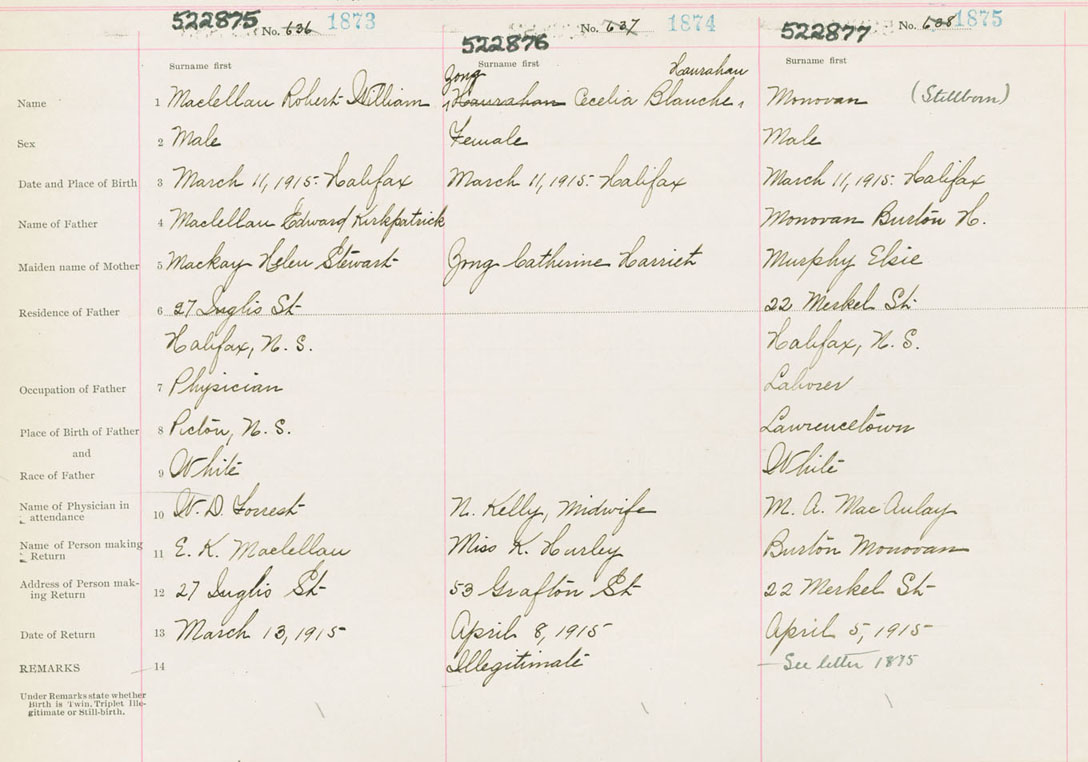 522875 No. 636 1873
522876 No. 637 1874
522877 No. 638 1875
Surname first Surname first Surname first
Zong Hanrahan
Name 1 Maclellan Robert William Hanrahan Cecelia Blanche Monovan (Stillborn)
Sex 2 Male Female Male
Date and Place of Birth 3 March 11, 1915. Halifax March 11, 1915. Halifax March 11, 1915. Halifax
Name of Father 4 Maclellan Edward Kirkpatrick Monovan Burton H.
Maiden name of Mother 5 Mackay Helen Stewart Zong Catherine Harriet Murphy Elsie
Residence of Father 6 27 Inglis St 22 Merkel St
Halifax, N.S. Halifax, N.S.
Occupation of Father 7 Physician Laborer
Place of Birth of Father 8 Pictou, N.S. Lawrencetown
and
Race of Father 9 White White
Name of Physician in
attendance 10 W. D. Forrest N. Kelly, Midwife M. A. MacAulay
Name of Person making
Return 11 E. K. Maclellan Miss K. Hurley Burton Monovan
Address of Person mak-
ing Return 12 27 Inglis St 53 Grafton St 22 Merkel St
Date of Return 13 March 13, 1915 April 8, 1915 April 5, 1915
REMARKS 14 Illegitimate See letter 1875
Under Remarks state whether
Birth is Twin, Triplet Ille-
gitimate or Still-birth.